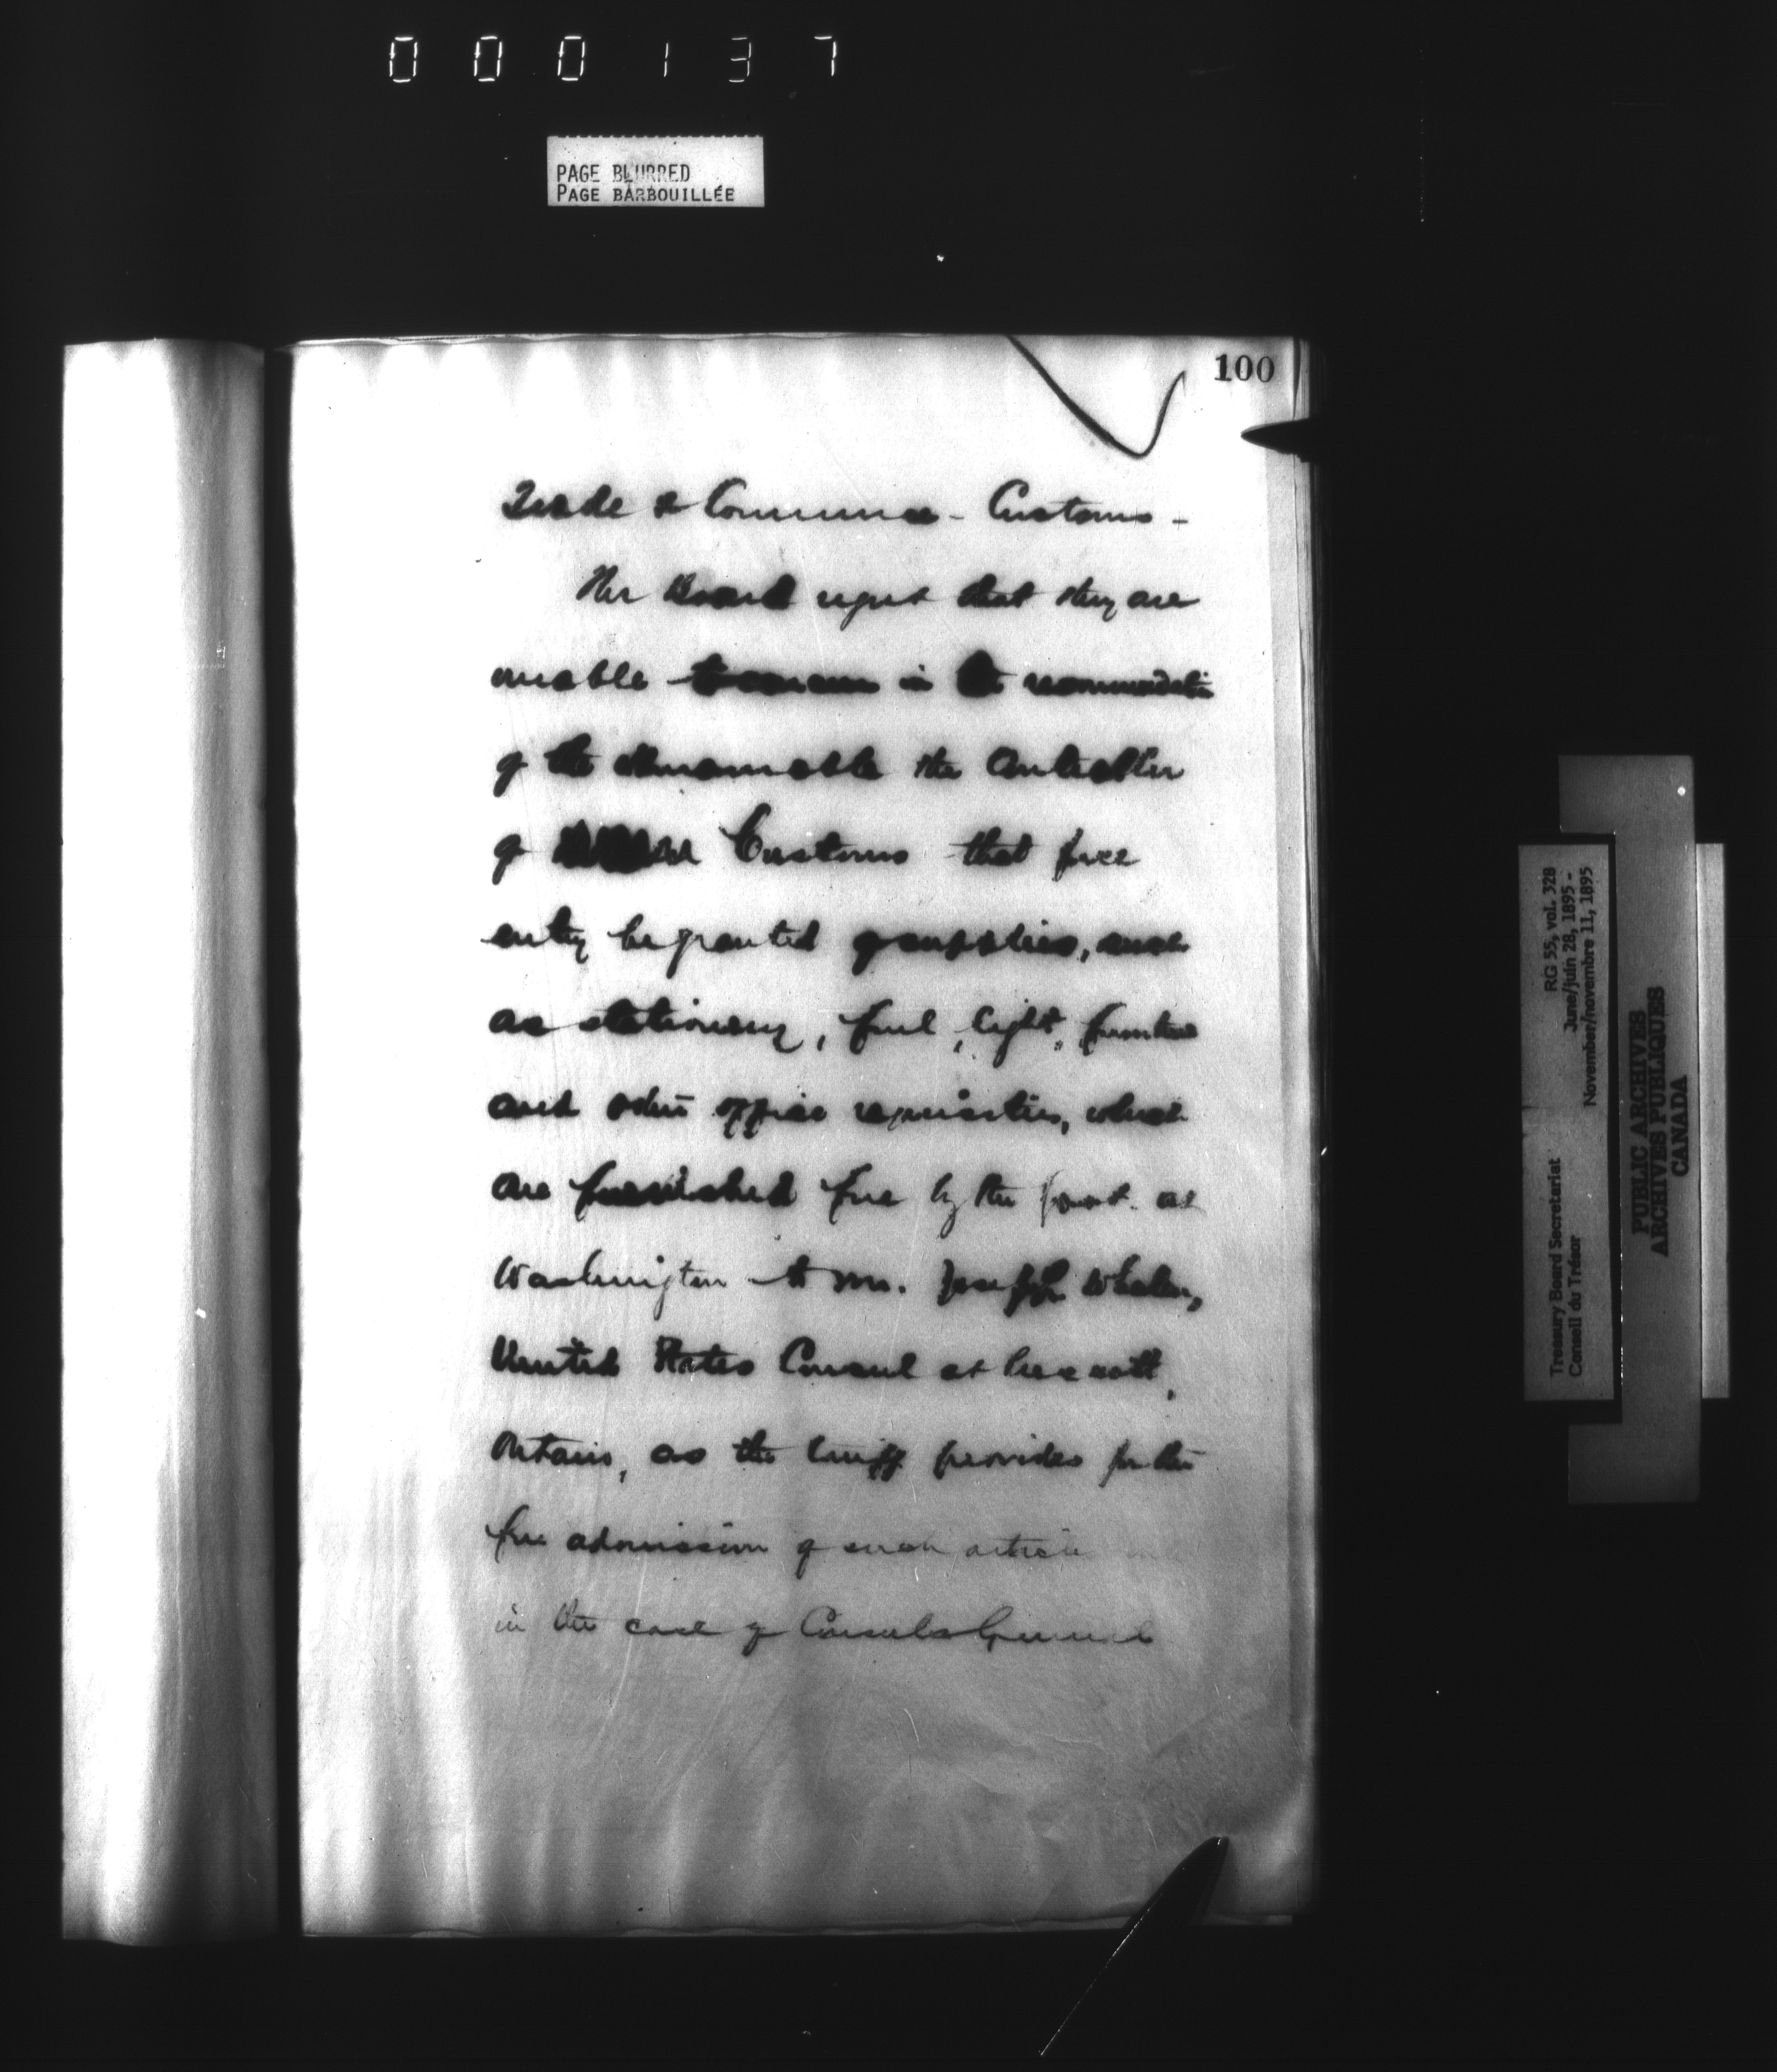 000137
PAGE BLURRED
PAGE BARBOUILLÉE
100
Trade & Commerce - Customs -
The Board regret that they are
unable to concur in the recommendation
of the Honourable the Controller
of Customs that free
entry be granted of supplies, such
as stationery, fuel, light, furniture
and other office requisites, which
are furnished free by the Govt. at
Washington to Mr. Joseph Whalen,
United States Consul at
Ontario, as the tariff provides for the
free admission of such articles only
in the case of Consuls General
RG 55, vol. 328
June/juin 28, 1895 -
November/novembre 11, 1895
Treasury Board Secretariat
Conseil du Trésor
PUBLIC ARCHIVES
ARCHIVES PUBLIQUES
CANADA